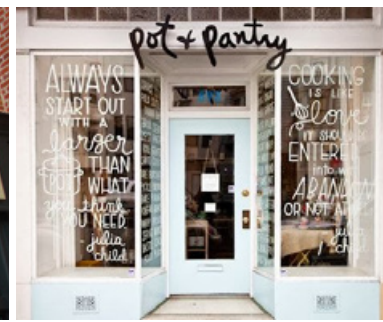 pot + pantry
ALWAYS
START OUT
WITH A
larger
POT THAN
WHAT
you think
YOU NEED.
- julia
child
COOKING
IS LIKE
love
IT SHOULD
ENTERED
into w
ABANDON
OR NOT AT
julia
child